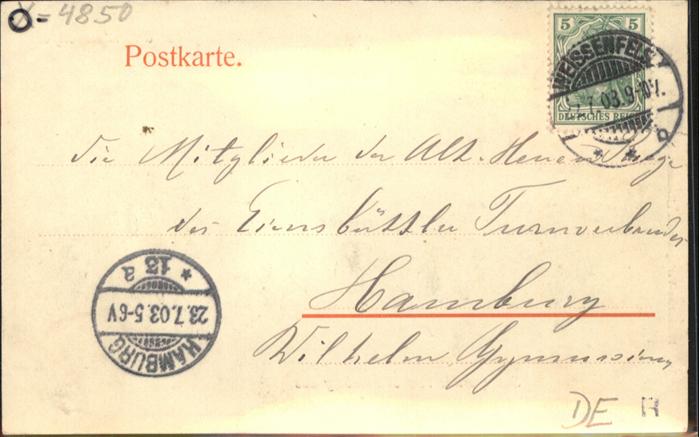 X-4850
Postkarte.
5 5
DEUTSCHES REICH
WEISSENFELS
.7.03.9-10V.
die Mitglieder der Alt-Herren
des Eimsbüttler Turnverbandes
Hamburg
Wilhelm Gymnasium
HAMBURG
23.7.03.5-6V
* 13 a
DE H